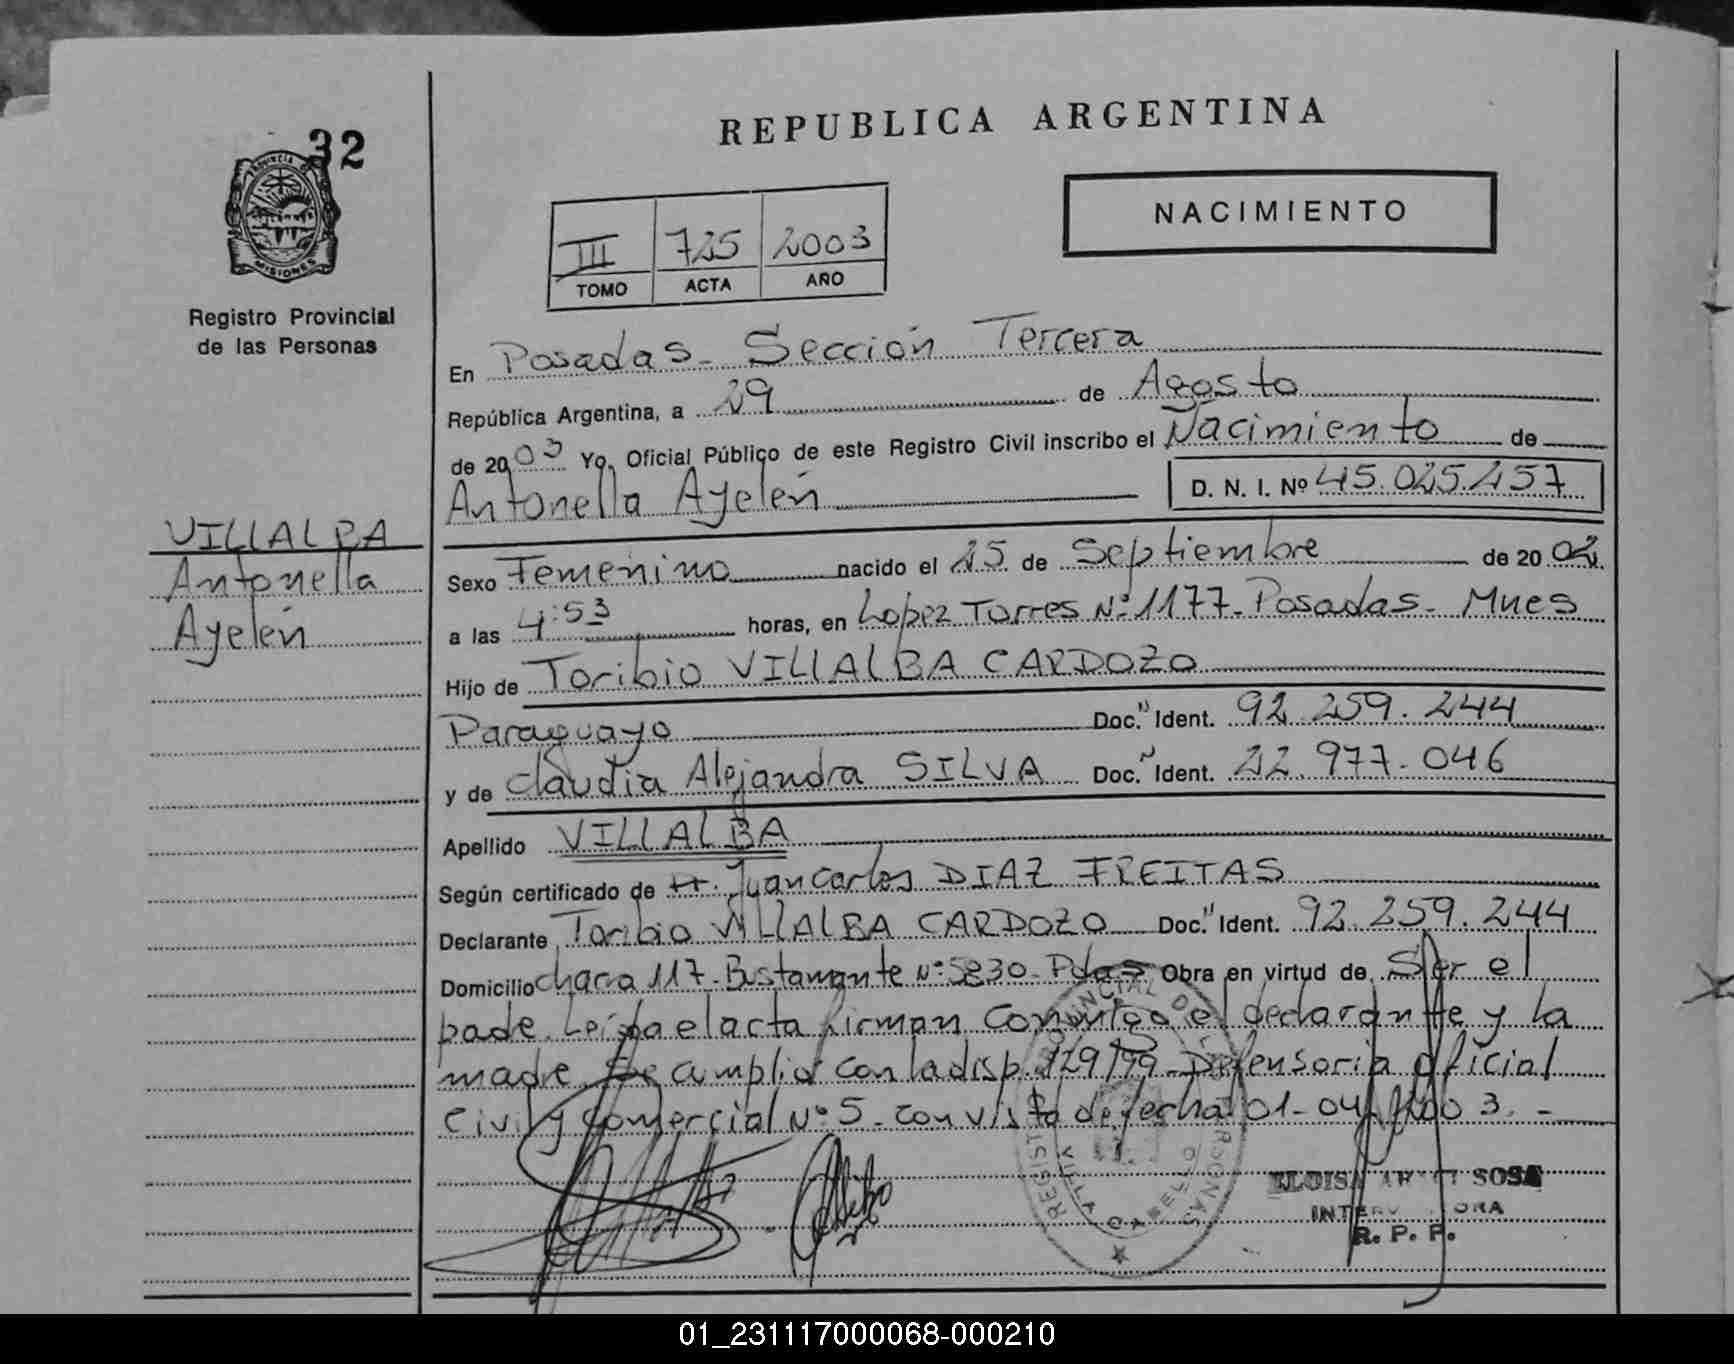 32
PROVINCIA DE
MISIONES
Registro Provincial
de las Personas
VILLALBA
Antonella
Ayelén
REPUBLICA ARGENTINA
NACIMIENTO
III 725 2003
TOMO ACTA AÑO
En Posadas - Sección Tercera
República Argentina, a 29 de Agosto
de 2003 Yo, Oficial Público de este Registro Civil inscribo el Nacimiento de
Antonella Ayelén D. N. I. Nº 45.025.257
Sexo Femenino nacido el 25 de Septiembre de 2002
a las 4:53 horas, en Lopez Torres Nº 1177 - Posadas - Mnes
Hijo de Toribio VILLALBA CARDOZO
Paraguayo Doc. Ident. 92.259.244
y de Claudia Alejandra SILVA Doc. Ident. 22.977.046
Apellido VILLALBA
Según certificado de Juan Carlos DIAZ FREITAS
Declarante Toribio VILLALBA CARDOZO Doc. Ident. 92.259.244
Domicilio chacra 117 - Bustamante Nº 5830 - Pdas Obra en virtud de Ser el
pade. Leída el acta firman conmigo el declarante y la
madre. Se cumplio con la disp. 129/99 - Defensoria oficial
Civil y Comercial Nº 5 - con vista de fecha 01-04-2003. -
SOSA
R. P. P.
VILLA CABELLO
01_231117000068-000210